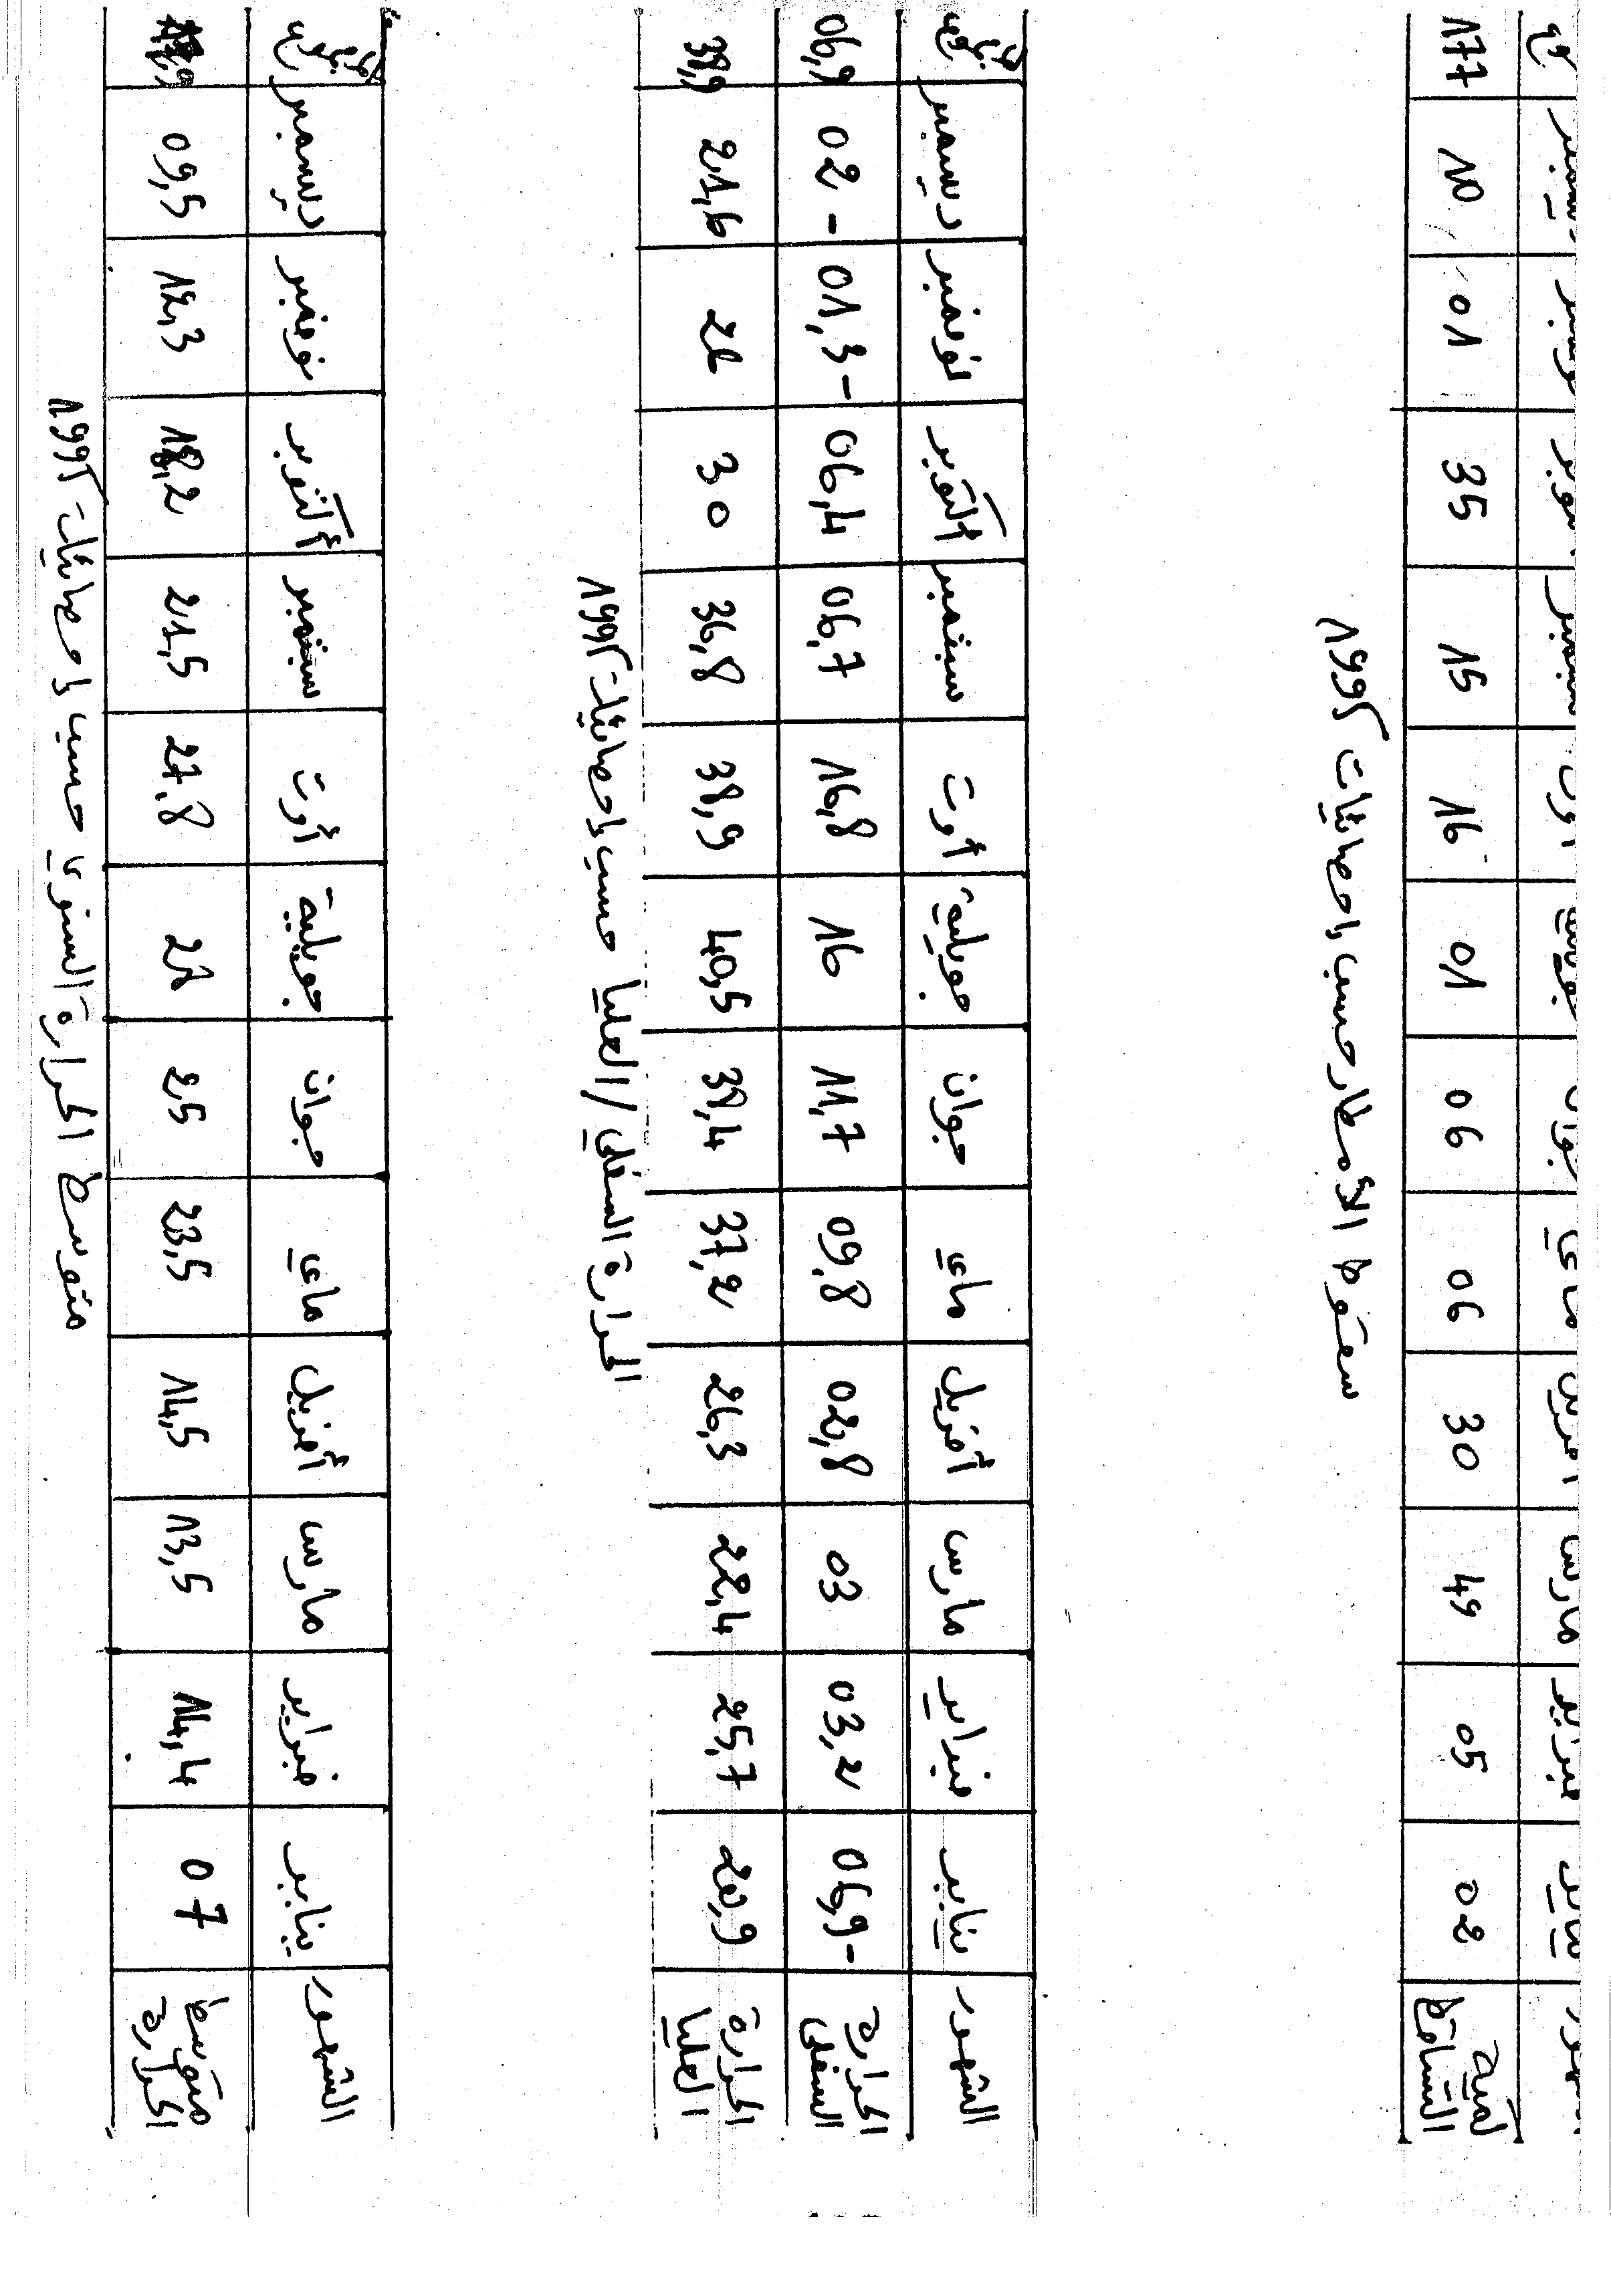 يناير فبراير مارس ماي جوان
كمية التساقط 02 05 49 30 06 06 01 16 15 35 01 10 177
سقوط الأمطار حسب إحصائيات
الشهور يناير فبراير مارس أفريل ماي جوان جويلية أوت سبتمبر أكتوبر نوفمبر ديسمبر
الحرارة السفلى 06,9- 03,2 03 02,8 09,8 11,7 16 16,8 06,7 06,4 01,3- 02- 06,9
الحرارة العليا 20,9 25,7 22,4 26,3 37,2 39,4 40,5 38,9 36,8 30 22 21,6
الحرارة السفلي / العليا حسب إحصائيات
الشهور يناير فبراير مارس أفريل ماي جوان جويلية أوت سبتمبر أكتوبر نوفمبر ديسمبر
متوسط الحرارة 07 14,4 13,5 14,5 23,5 2,5 27,8 21,5 18,2 12,3 09,5
متوسط الحرارة السنوي حسب إحصائيات